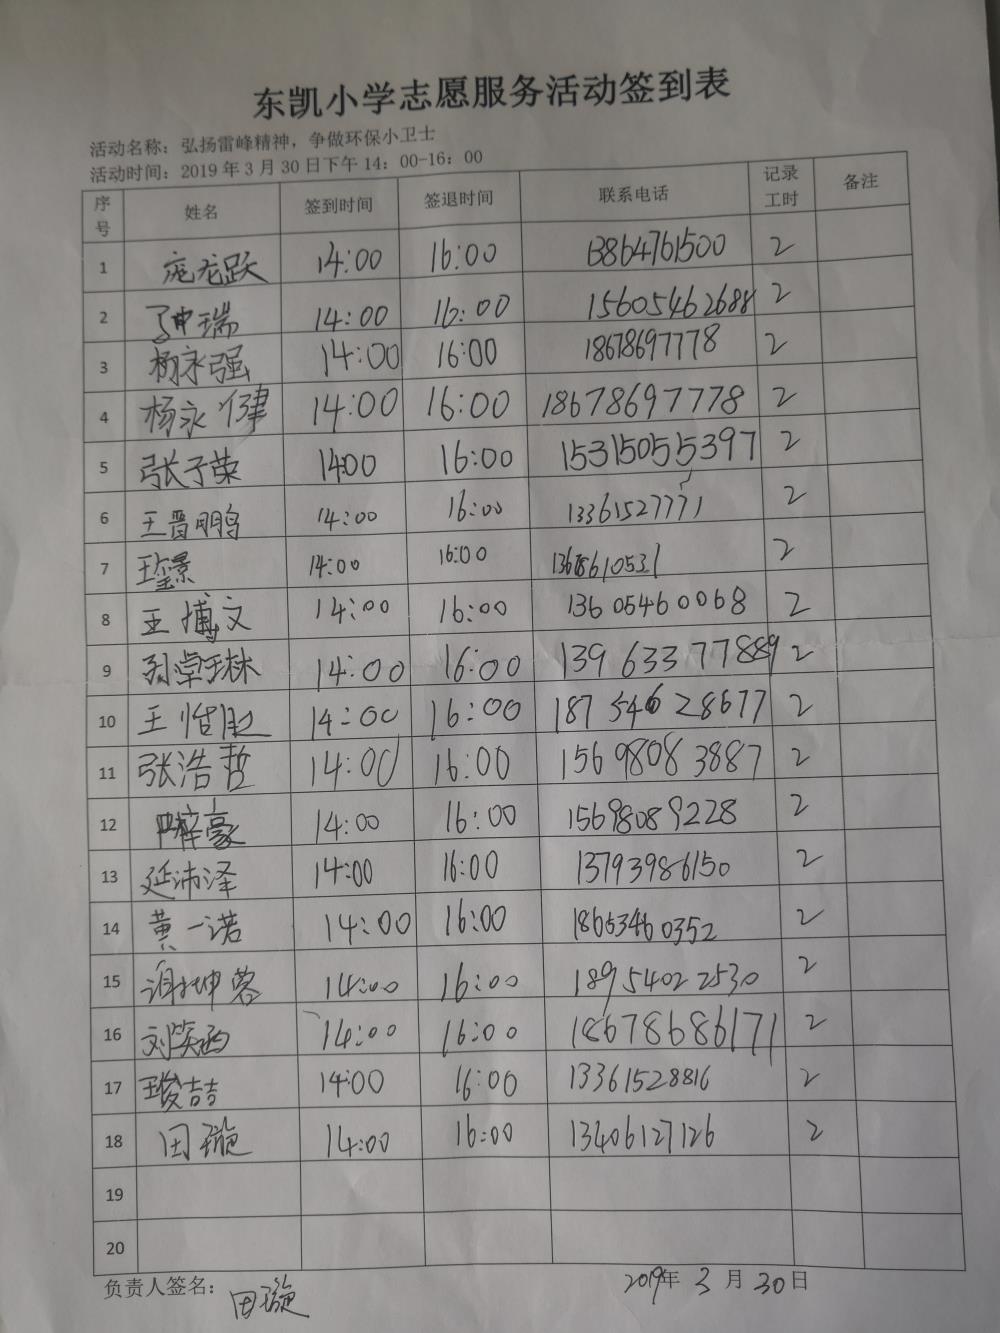 东凯小学志愿服务活动签到表
活动名称：弘扬雷峰精神，争做环保小卫士
活动时间：2019年3月30日下午14：00-16：00
序号 姓名 签到时间 签退时间 联系电话 记录工时 备注
1 庞龙跃 14:00 16:00 13864761500 2
2 申瑞 14:00 16:00 15605462688 2
3 杨永强 14:00 16:00 18678697778 2
4 杨永健 14:00 16:00 18678697778 2
5 张子荣 1400 16:00 15315055397 2
6 王晋鹏 14:00 16:00 13361527771 2
7 14:00 16:00 13678610531 2
8 王博文 14:00 16:00 13605460068 2
9 14:00 16:00 13963377889 2
10 王 14:00 16:00 18754628677 2
11 张浩哲 14:00 16:00 15698083887 2
12 梓豪 14:00 16:00 15698089228 2
13 延沛泽 14:00 16:00 13793986150 2
14 黄一诺 14:00 16:00 18653460352 2
15 谢坤蓉 14:00 16:00 18954022530 2
16 刘笑涵 14:00 16:00 18678686171 2
17 王骏喆 14:00 16:00 13361528816 2
18 田璇 14:00 16:00 13406127126 2
19
20
负责人签名：田璇 2019年3月30日